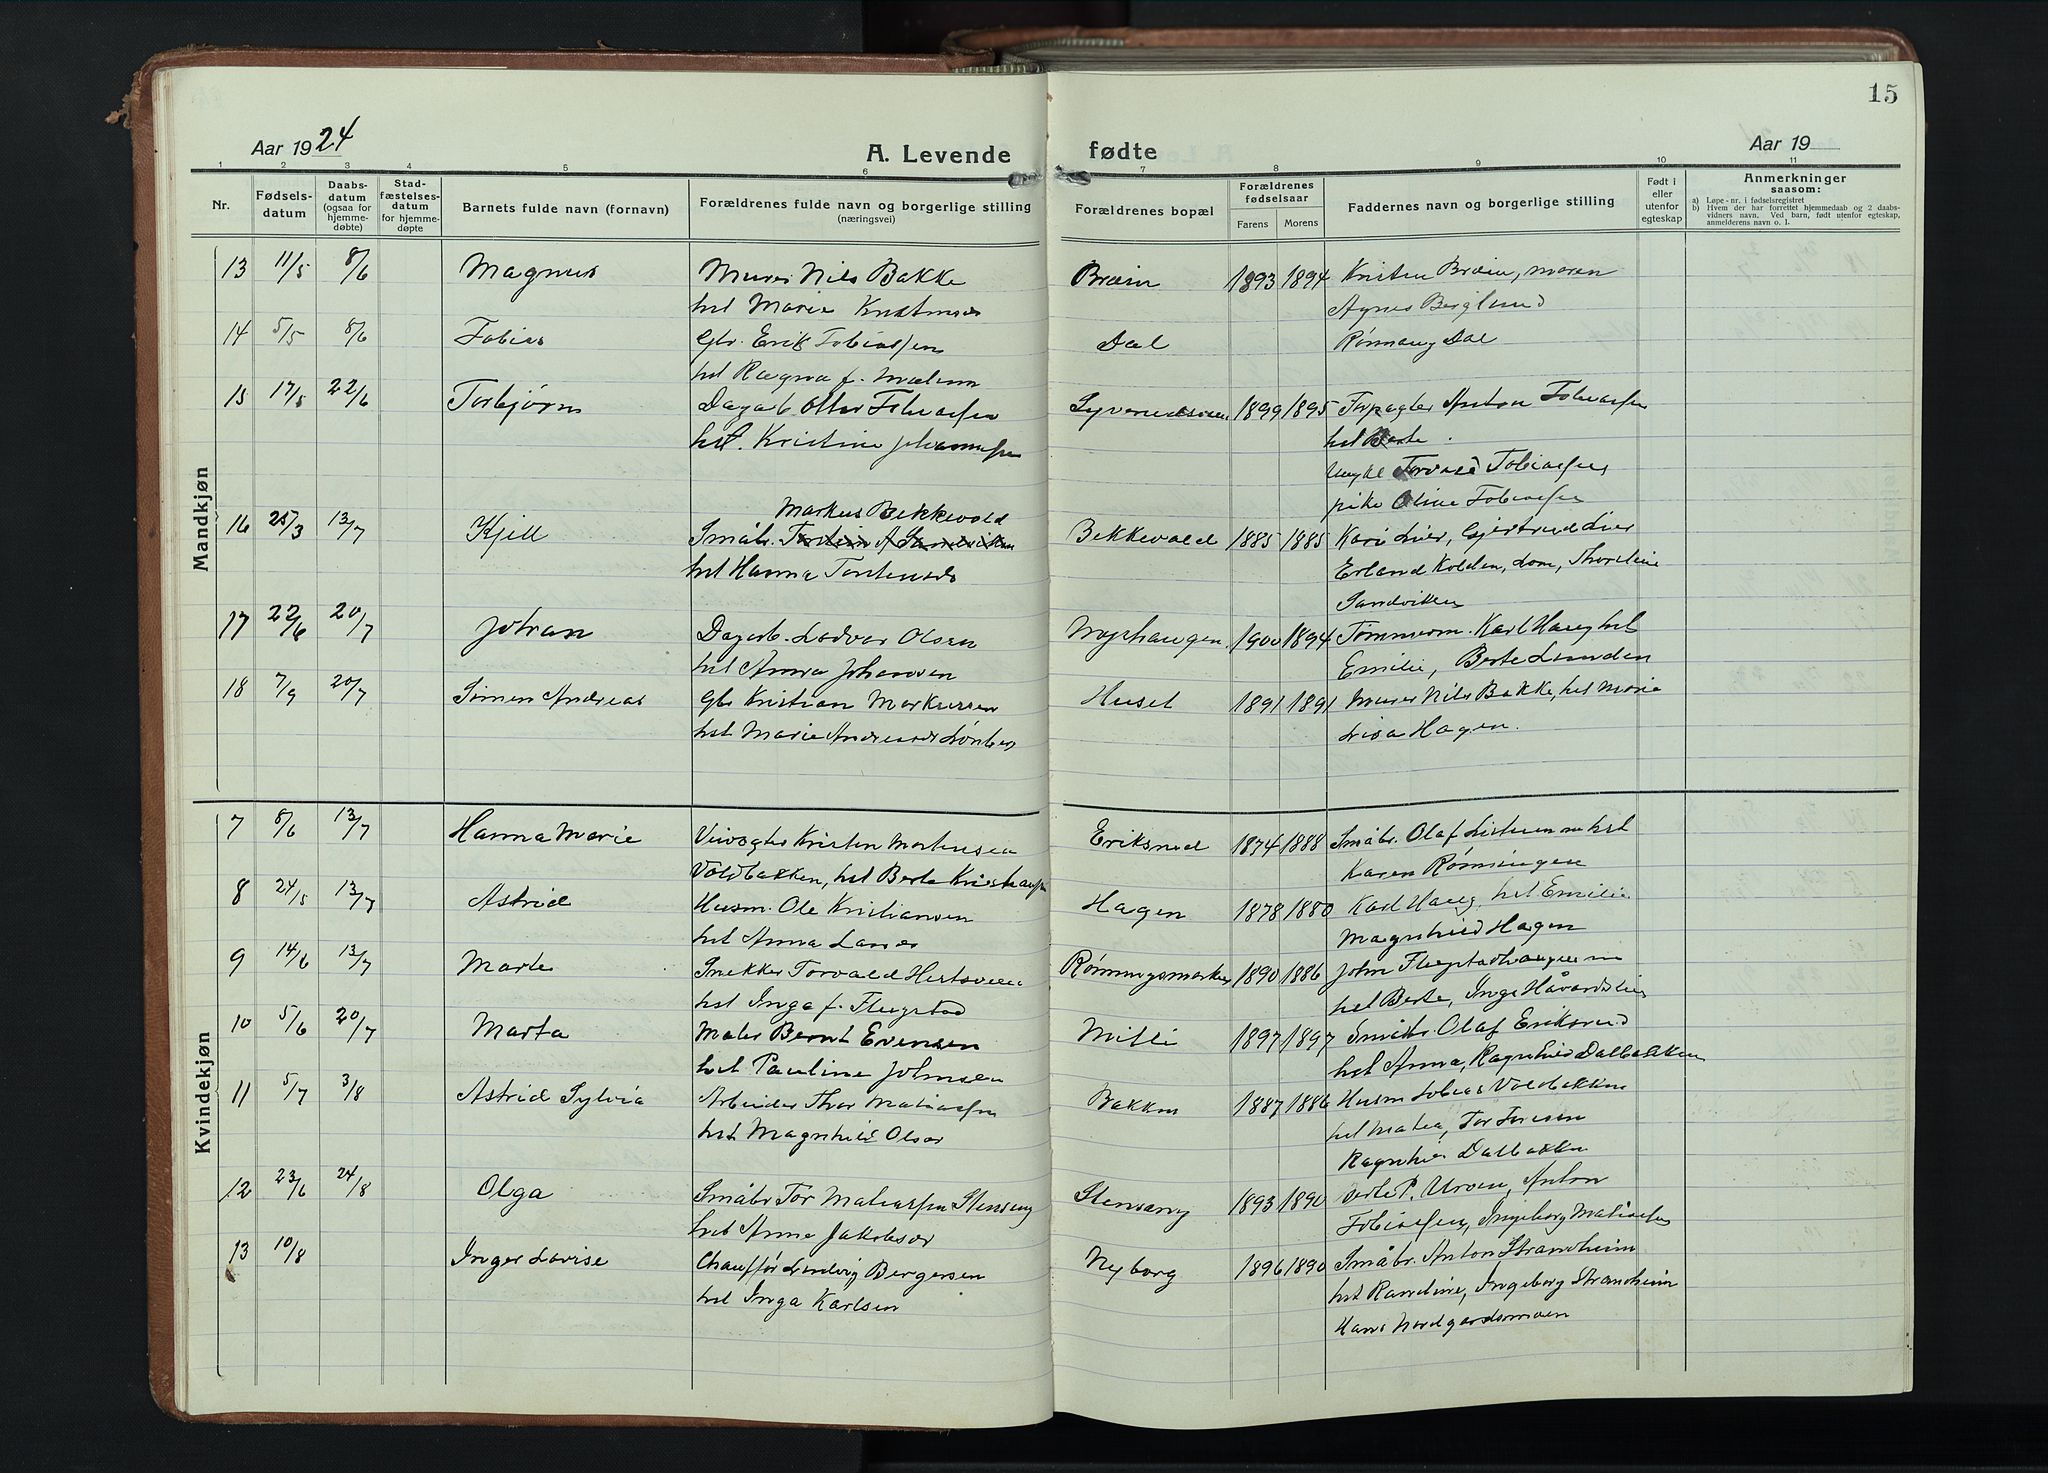 15
Aar 1924
A. Levende
fødte
Aar 19
1 2 3 4 5 6 7 8 9 10 11
Nr.
Fødsels-
datum
Daabs-
datum
(ogsaa for
hjemme-
døbte)
Stad-
fæstelses-
datum
for hjemme-
døpte
Barnets fulde navn (fornavn)
Forældrenes fulde navn og borgerlige stilling
(næringsvei)
Forældrenes bopæl
Forældrenes
fødselsaar
Farens Morens
Faddernes navn og borgerlige stilling
Født i
eller
utenfor
egteskap
Anmerkninger
saasom:
a) Løpe-nr. i fødselsregistret
b) Hvem der har forrettet hjemmedaab og 2 daabs-
vidners navn. Ved barn, født utenfor egteskap,
anmelderens navn o. l.
Mandkjøn
13 11/5 8/6 Magnus Murer Nils Bakke Bræin 1893 1894 Kristen Bræin, maren
hst Marie Agnes Berglund
14 5/5 8/6 Tobias Gbr. Erik Tobiassen Dal Rønnaug Dal
hst Ragna f. Mælum
15 17/5 22/6 Torbjørn Dagarb. Ottar Tobiassen 1899 1895 Forpagter Anton Tobiassen
hst. Kristine Johannessen hst Berte.
Ungkl Torvald Tobiassen
pike Oline Tobiassen
Markus Bekkevold
16 25/3 13/7 Kjell Småbr. Bekkevold 1885 1885 Kari Lier, Gjertrud Lier
hst Hanna Erland Kolden, Lom, Thorstein
Sandviken
17 22/6 20/7 Johan Dagarb. Ludvar Olsen 1900 1894 Tømmerm. Karl Haug hst
hst Anna Johansen Emilie, Berte Lunden
18 7/9 20/7 Simen Andreas Gbr Kristian Markussen Huset 1891 1891 Murer Nils Bakke, hst Marie
hst Marie Lina Hagen.
Kvindekjøn
7 8/6 13/7 Hanna Marie Veivogter Kristen Mortensen Eriksrud 1874 1888 Småbr. Olaf hst
Voldbakken, hst Berte Karen Rønningen
8 24/5 13/7 Astrid Husm. Ole Kristiansen Hagen 1878 1880 Karl Haug hst Emilie
hst Anna Magnhild Hagen
9 14/6 13/7 Marte Snekker Torvald 1890 1886 John
hst Inga f. Flugstad hst Berte, Inge
10 5/6 20/7 Marta Maler Bernt Evensen Milli 1897 1897 Småbr. Olaf Eriksrud
hst Pauline Johnsen hst Anna, Ragnhild Dalbakken
11 5/7 3/8 Astrid Sylvia Arbeider Thor Matiassen Bakken 1887 1886 Husm Tobias Voldbakken
hst Magnhild hst Matea, Tor
Ragnhild Dalbakken
12 23/6 24/8 Olga Småbr Tor Matiassen Steinsvang 1893 1890 P. Uroen, Anton
hst Anne Tobiassen, Ingeborg Matiassen
13 10/8 Inger Lovise Chauffør Ludvig Bergersen Nyborg 1896 1890 Småbr. Anton Strandheim
hst Inga Karlsen hst Randine, Ingeborg Strandheim
Hans Nordgardsmoen